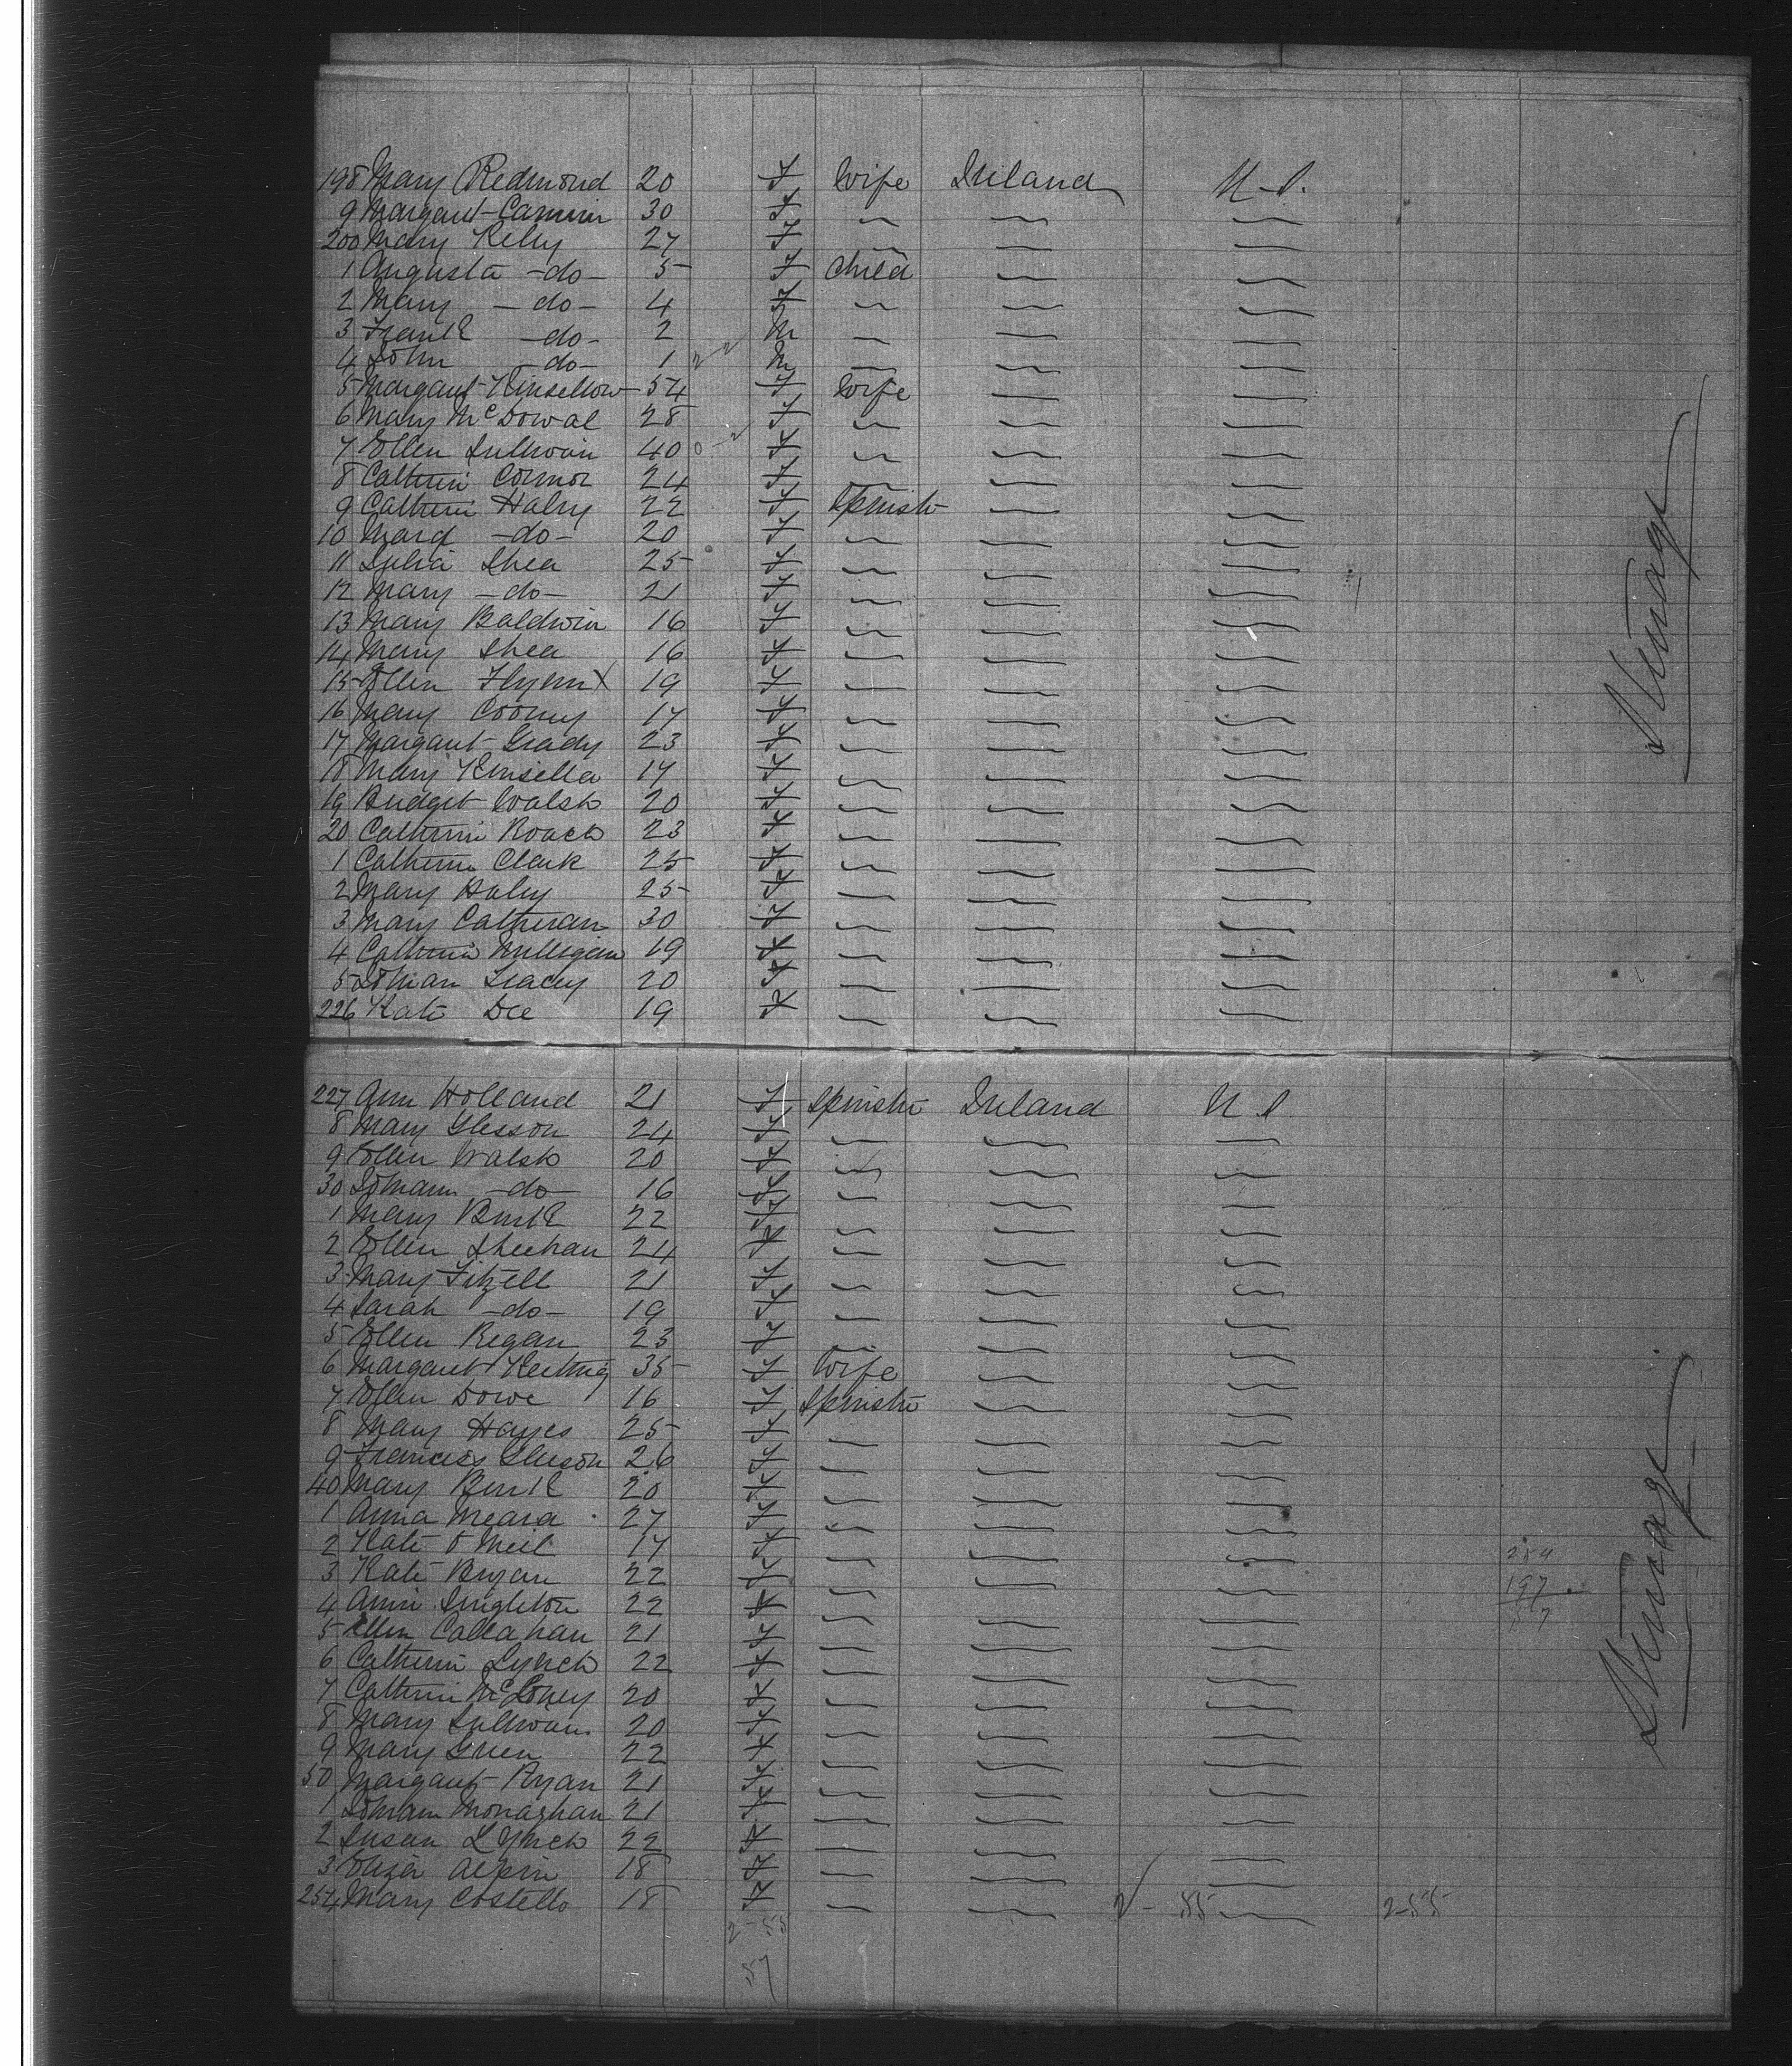 198 Mary Redmond 20 F Wife Ireland U.S.
9 Margaret 30 F
200 Mary Reley 27 F
1 Augusta -do- 5 F Child
2 Mary -do- 4 F
3 Frank -do- 2 M
4 John -do- 1 M
5 Margaret Kinsellow 54 F Wife
6 Mary McDowal 28 F
7 Ellen Sullivan 40 F
8 Catherin Connor 24 F
9 Catherin Haley 22 F Spinstr
10 -do- 20 F
11 Julia Shea 25 F
12 Mary -do- 21 F
13 Mary Baldwin 16 F
14 Mary Shea 16 F
15 Ellen X 19 F
16 Mary Cooney 17 F
17 Margaret Grady 23 F
18 Mary Kinsella 17 F
19 Bridget Walsh 20 F
20 Catherin Roach 23 F
1 Catherin Clark 25 F
2 Mary Haley 25 F
3 Mary 30 F
4 Catherin Milligan 19 F
5 Johan 20 F
226 Kate Dee 19 F
Steerage
227 Ann Holland 21 F Spinstr Ireland U.S.
8 Mary Gleeson 24 F
9 Ellen Walsh 20 F
30 Johann -do- 16 F
1 Mary Burke 22 F
2 Ellen Sheehan 24 F
3 Mary Fitzell 21 F
4 Sarah -do- 19 F
5 Ellen Regan 23 F
6 Margaret Keeting 35 F Wife
7 Ellen Dowe 16 F Spinstr
8 Mary Hayes 25 F
9 Frances Gleeson 26 F
40 Mary Burke 20 F
1 Anna Meara 27 F
2 Kate O Neil 17 F
3 Kate Bryan 22 F
4 Annie Singleton 22 F
5 Ellen Callahan 21 F
6 Catherin Lynch 22 F
7 Catherin 20 F
8 Mary Sullivan 20 F
9 Mary Green 22 F
50 Margaret Ryan 21 F
1 Johann Monaghan 21 F
2 Susan Lynch 22 F
3 Eliza 18 F
254 Mary Costello 18 F 2-55 2-55
2-55
57
254
197
57
Steerage